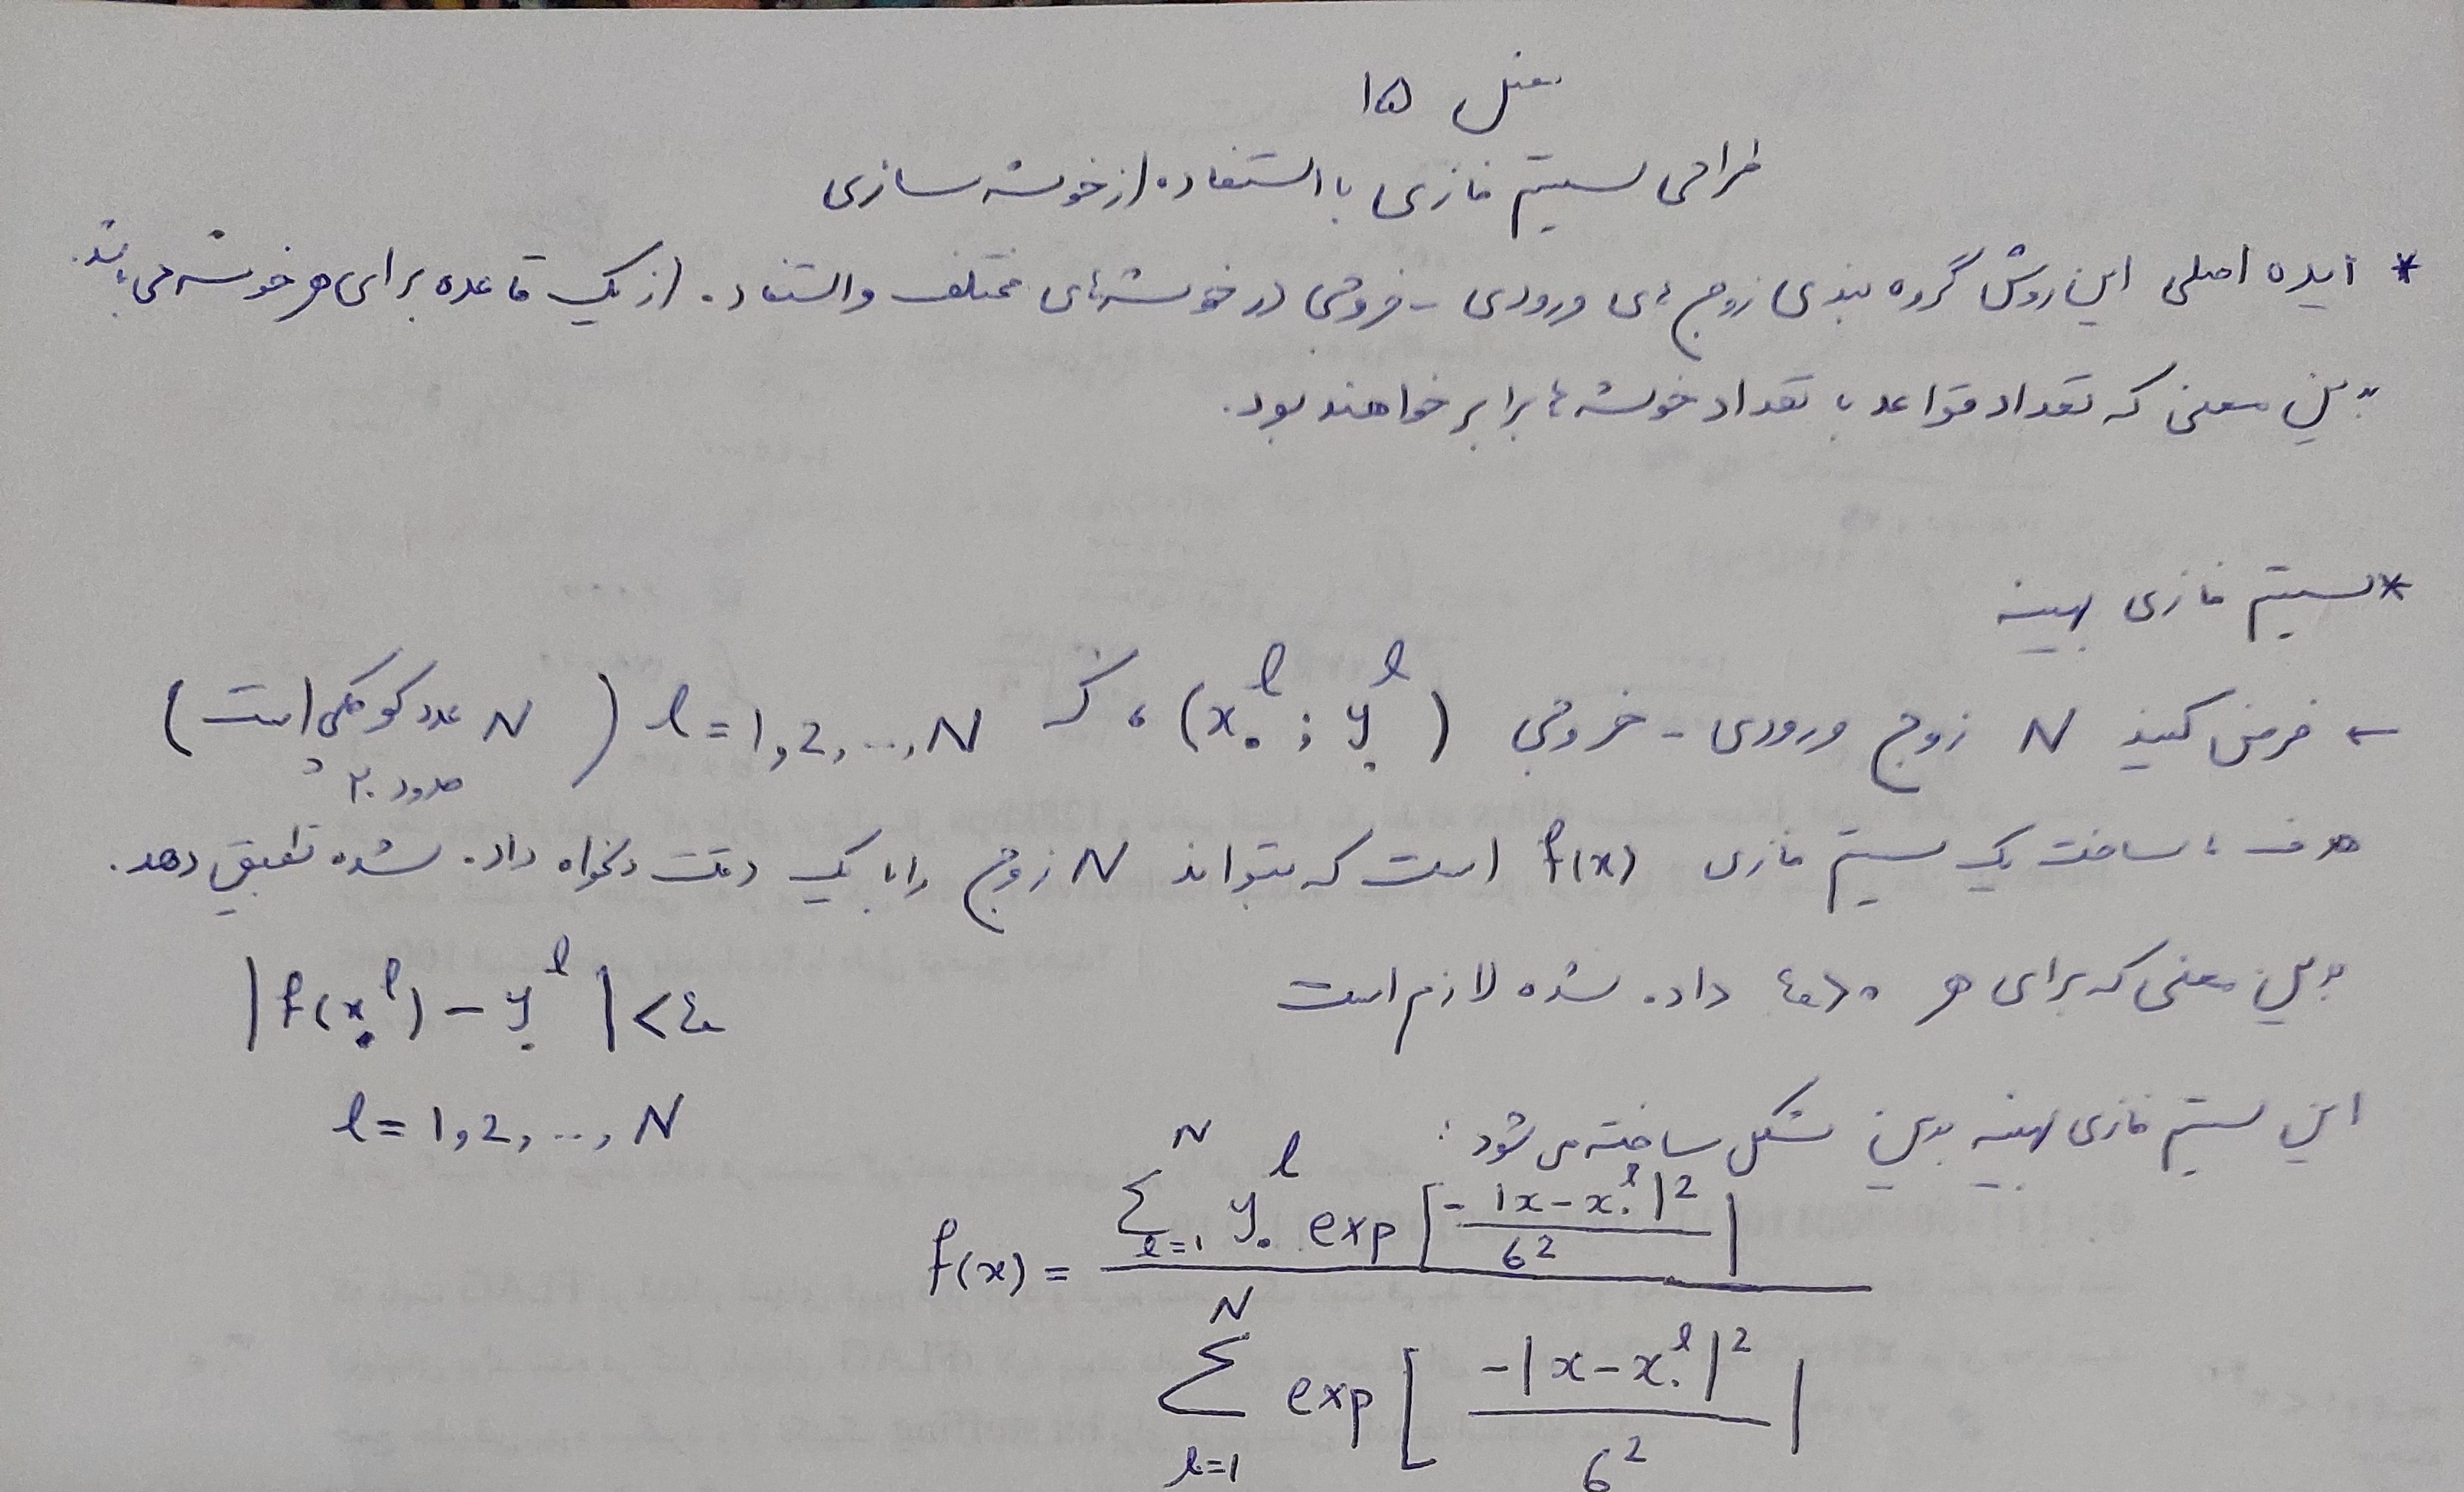 فصل ۱۵
طراحی سیستم فازی با استفاده از خوشه سازی
* ایده اصلی این روش گروه بندی زوج های ورودی - خروجی در خوشه های مختلف و استفاده از یک قاعده برای هر خوشه می باشد.
بدین معنی که تعداد قواعد با تعداد خوشه ها برابر خواهند بود.
* سیستم فازی بهینه
← فرض کنید N زوج ورودی - خروجی (x₀ˡ ; y₀ˡ) ، که l = 1, 2, ..., N ( N عدد کوچکی است )
حدود ۲۰
هدف ، ساخت یک سیستم فازی f(x) است که بتواند N زوج را با یک دقت دلخواه داده شده تطبیق دهد.
بدین معنی که برای هر ε>0 داده شده لازم است |f(x₀ˡ) - y₀ˡ| < ε
l = 1, 2, ..., N
این سیستم فازی بهینه بدین شکل ساخته می شود :
f(x) = \frac{\sum_{l=1}^{N} y_0^l exp[\frac{-|x-x_0^l|^2}{6^2}]}{\sum_{l=1}^{N} exp[\frac{-|x-x_0^l|^2}{6^2}]}